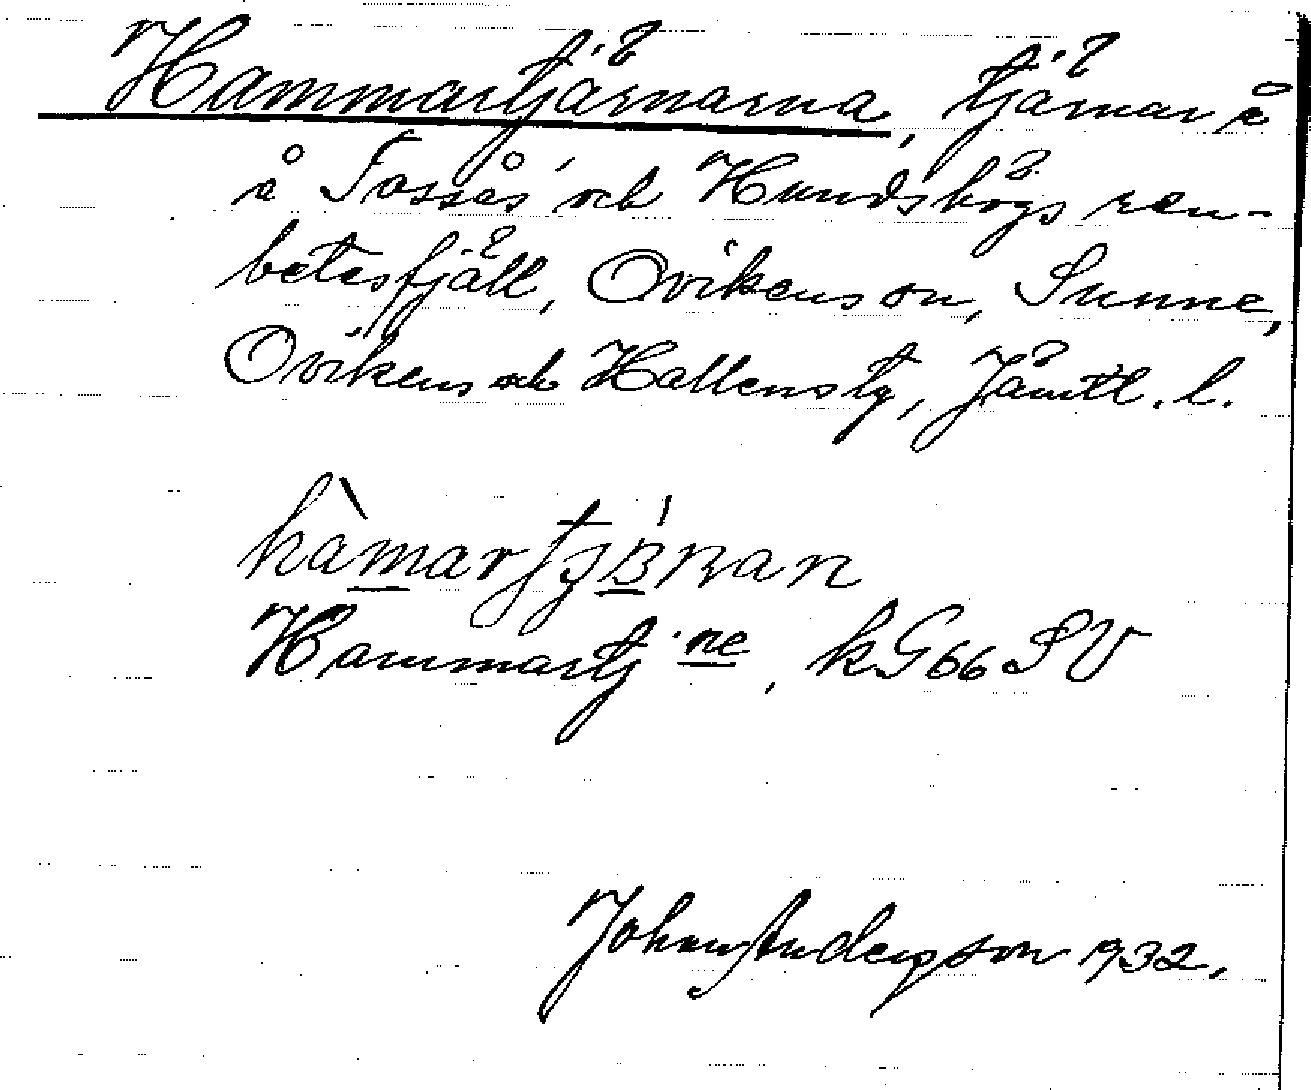 Hammartjärnarna, tjärnar å
å Tossås och Hundshögs ren-
betesfjäll, Ovikens sn, Sunne,
Ovikens och Hallens tg, Jämtl. l.
Hammartj:ne, kG66SV
Johan Anderson 1932.